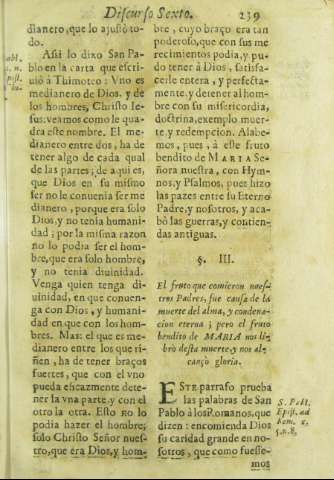 Discurso Sexto. 239
dianero, que lo ajustò to-
do.
Assi lo dixo San Pa-
blo en la carta que escri-
uiò à Thimoteo: Vno es
medianero de Dios, y de
los hombres, Christo Ie-
sus: veamos como le qua-
dra este nombre. El me-
dianero entre dos, ha de
tener algo de cada qual
de las partes; de aqui es,
que Dios en su mismo
ser no le conuenia ser me
dianero, porque era solo
Dios, y no tenia humani-
dad; por la misma razon
no lo podia ser el hom-
bre, que era solo hombre,
y no tenia diuinidad.
Venga quien tenga di-
uinidad, en que conuen-
ga con Dios, y humani-
dad en que con los hom-
bres. Mas: el que es me-
dianero entre los que ri-
ñen, ha de tener braços
fuertes, que con el vno
pueda escazmente dete-
ner la vna parte, y con el
otro la otra. Esto no lo
podia hazer el hombre;
solo Christo Señor nues-
tro, que era Dios, y hom-
bre, cuyo braço era tan
poderoso, que con sus me
recimientos podia, y pu-
do tener à Dios, satisfa-
cerle entera, y perfecta-
mente, y detener al hom-
bre con su misericordia,
doctrina, exemplo, muer-
te, y redempcion. Alabe-
mos, pues, à este fruto
bendito de MARIA Se-
ñora nuestra, con Hym-
nos, y Psalmos, pues hizo
las pazes entre su Eterno
Padre, y nosotros, y aca-
bò las guerras, y contien-
das antiguas.
§. III.
El fruto que comieron nues-
tros Padres, fue causa de la
muerte del alma, y condena-
cion eterna; pero el fruto
bendito de MARIA nos li-
brò desta muerte, y nos al-
cançò gloria.
ESTE parrafo prueba
las palabras de San
Pablo à los Romanos, que
dizen: encomienda Dios
su caridad grande en no-
sotros, que como fuesse-
mos
S. Pabl.
Epist. ad